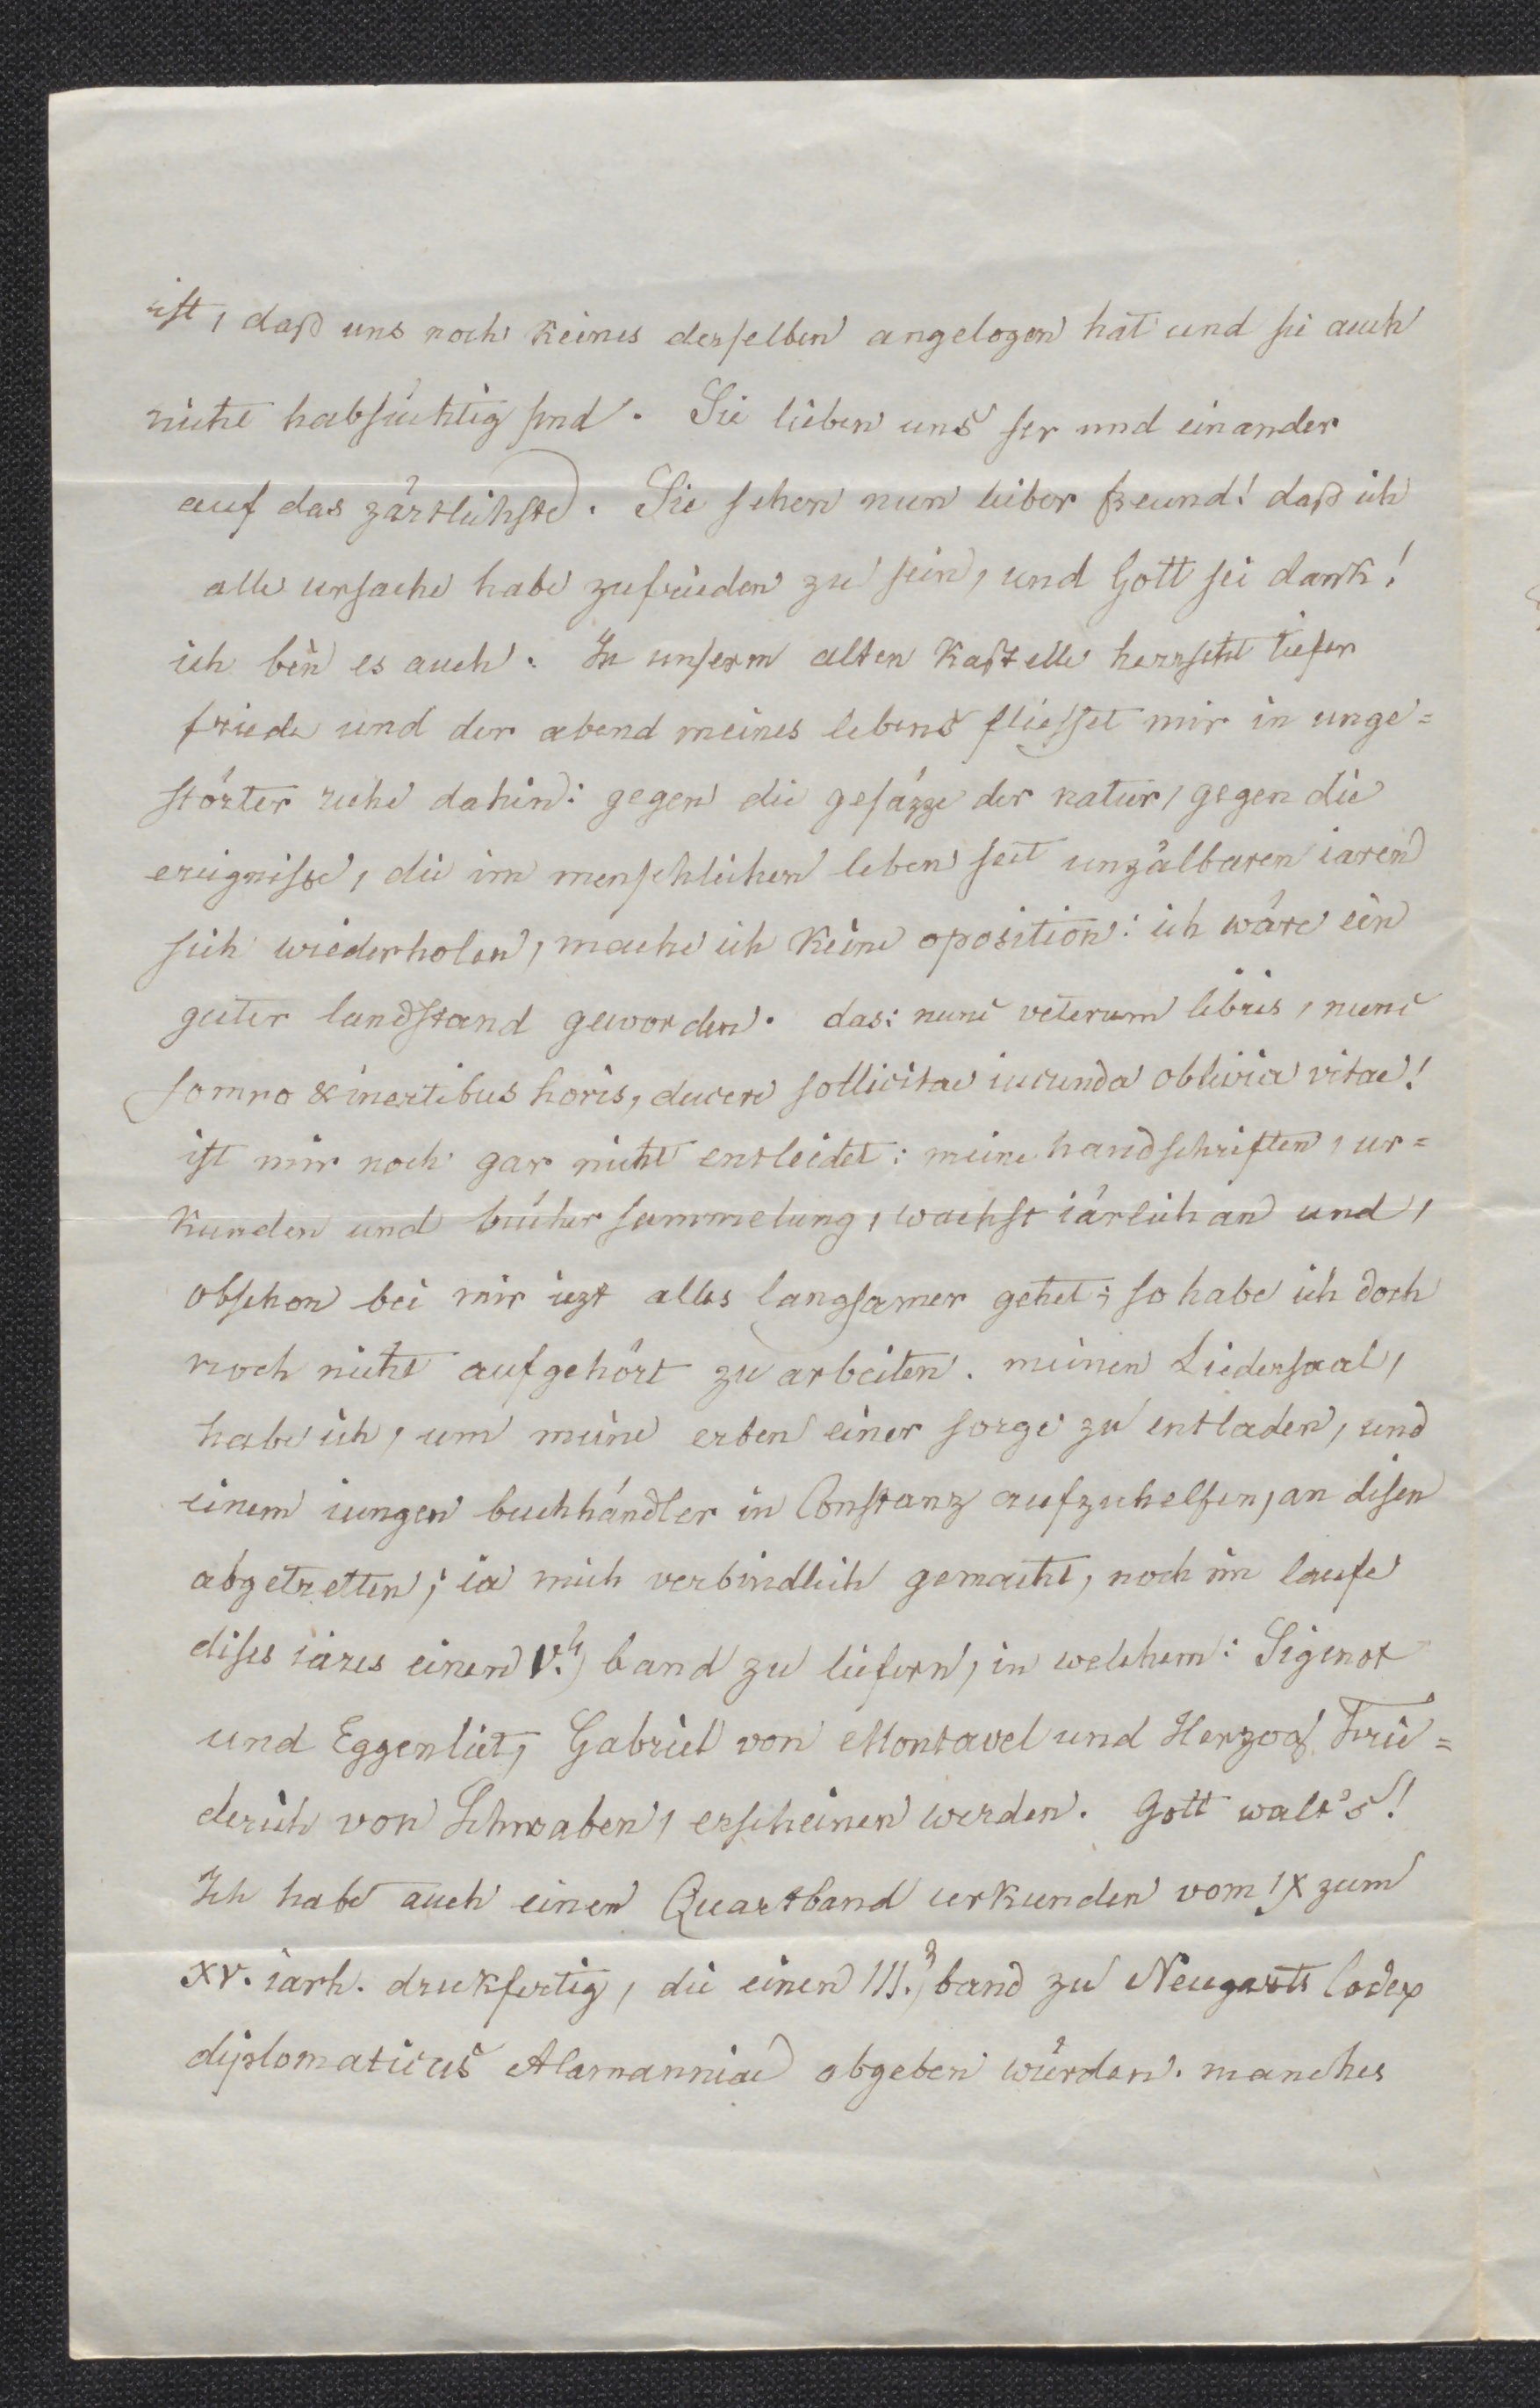 ist, daß uns noch keines derselben angelogen hat und sie auch
nicht habsüchtig sind. Sie lieben uns ser und einander
auf das zärtlichste. Sie sehen nun lieber freund! daß ich
alle ursache habe zufrieden zu sein, und Gott sei dank!
ich bin es auch. In unserm alten Kastelle herrscht tiefer
friede und der abend meines lebens fliesset mir in unge=
störter ruhe dahin: gegen die gesäzze der natur, gegen die
ereignisse, die im menschlichen leben seit unzälbaren iaren
sich wiederholen, mache ich keine oposition: ich wäre ein
guter landstand geworden. das: nunc veterum libris, nunc
somno & inertibus horis, ducere sollicitae iucunda oblivia vitae!
ist mir noch gar nicht entleidet: meine handschriften, ur=
kunden und büchersammelung, wachst iärlich an und,
obschon bei mir iezt alles langsamer gehet; so habe ich doch
noch nicht aufgehört zu arbeiten. meinen Liedersaal,
habe ich, um meine erben einer sorge zu entladen, und
einem iungen buchhändler in Constanz aufzuhelfen, an disen
abgetretten; ia mich verbindlich gemacht, noch im laufe
dises iares einen V.t) band zu liefern, in welchem: Sigenot
und Eggenliet, Gabriel von Montavel und Herzog Frie=
derich von Schwaben, erscheinen werden. Gott walt's!
Ich habe auch einen Quartband urkunden vom IX zum
XV. iarh. drukfertig, die einen III.) band zu Neugarts Codex
diplomaticus Alamanniae abgeben würden. manches